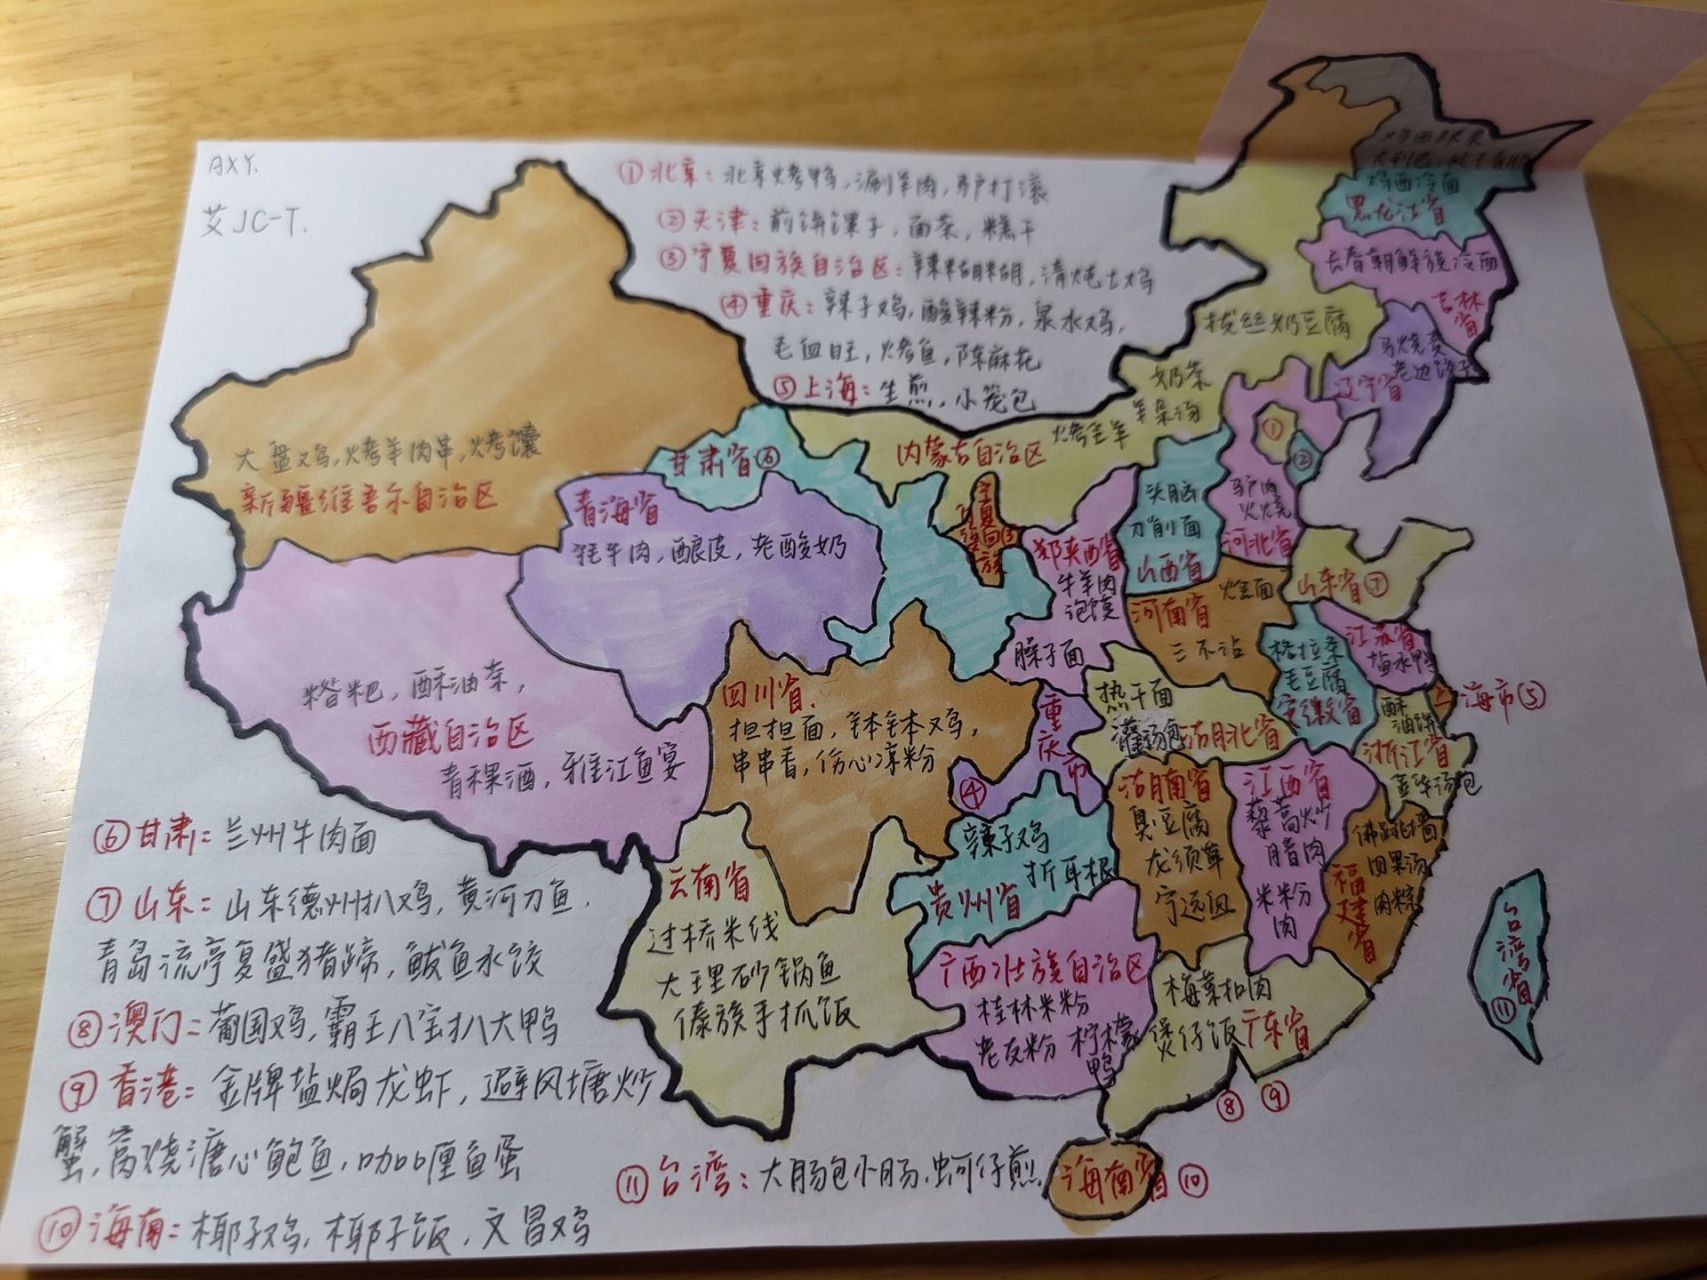 AXY.
艾JC-T.
①北京：北京烤鸭，涮羊肉，驴打滚
②天津：煎饼馃子，面茶，糕干
③宁夏回族自治区：辣糊糊，清炖土鸡
④重庆：辣子鸡，酸辣粉，泉水鸡，
毛血旺，烤鱼，陈麻花
⑤上海：生煎，小笼包
鸡西冷面
黑龙江省
长春朝鲜族冷面
吉林省
老边饺子
辽宁省
拔丝奶豆腐
奶茶
羊杂汤
烤全羊
内蒙古自治区
大盘鸡，烤羊肉串，烤馕
新疆维吾尔自治区
甘肃省⑥
青海省
牦牛肉，酿皮，老酸奶
①
②
驴肉
火烧
河北省
头脑
刀削面
山西省
陕西省
牛羊肉
泡馍
臊子面
河南省
烩面
三不沾
山东省⑦
江苏省
盐水鸭
毛豆腐
安徽省
上海市⑤
浙江省
糌粑，酥油茶，
西藏自治区
青稞酒，雅江鱼宴
四川省：
担担面，钵钵鸡，
串串香，伤心凉粉
重庆市
④
热干面
灌汤包
湖北省
湖南省
臭豆腐
龙须草
宁远血
江西省
藜蒿炒
腊肉
米粉
肉
佛跳墙
四果汤
肉粽
福建省
台湾省⑪
辣子鸡
折耳根
贵州省
云南省
过桥米线
大理砂锅鱼
傣族手抓饭
广西壮族自治区
桂林米粉
老友粉 柠檬
鸭
梅菜扣肉
煲仔饭
广东省
⑧ ⑨
海南省⑩
⑥甘肃：兰州牛肉面
⑦山东：山东德州扒鸡，黄河刀鱼，
青岛流亭复盛猪蹄，鲅鱼水饺
⑧澳门：葡国鸡，霸王八宝扒大鸭
⑨香港：金牌盐焗龙虾，避风塘炒
蟹，窝烧溏心鲍鱼，咖喱鱼蛋
⑩海南：椰子鸡，椰子饭，文昌鸡
⑪台湾：大肠包小肠，蚵仔煎